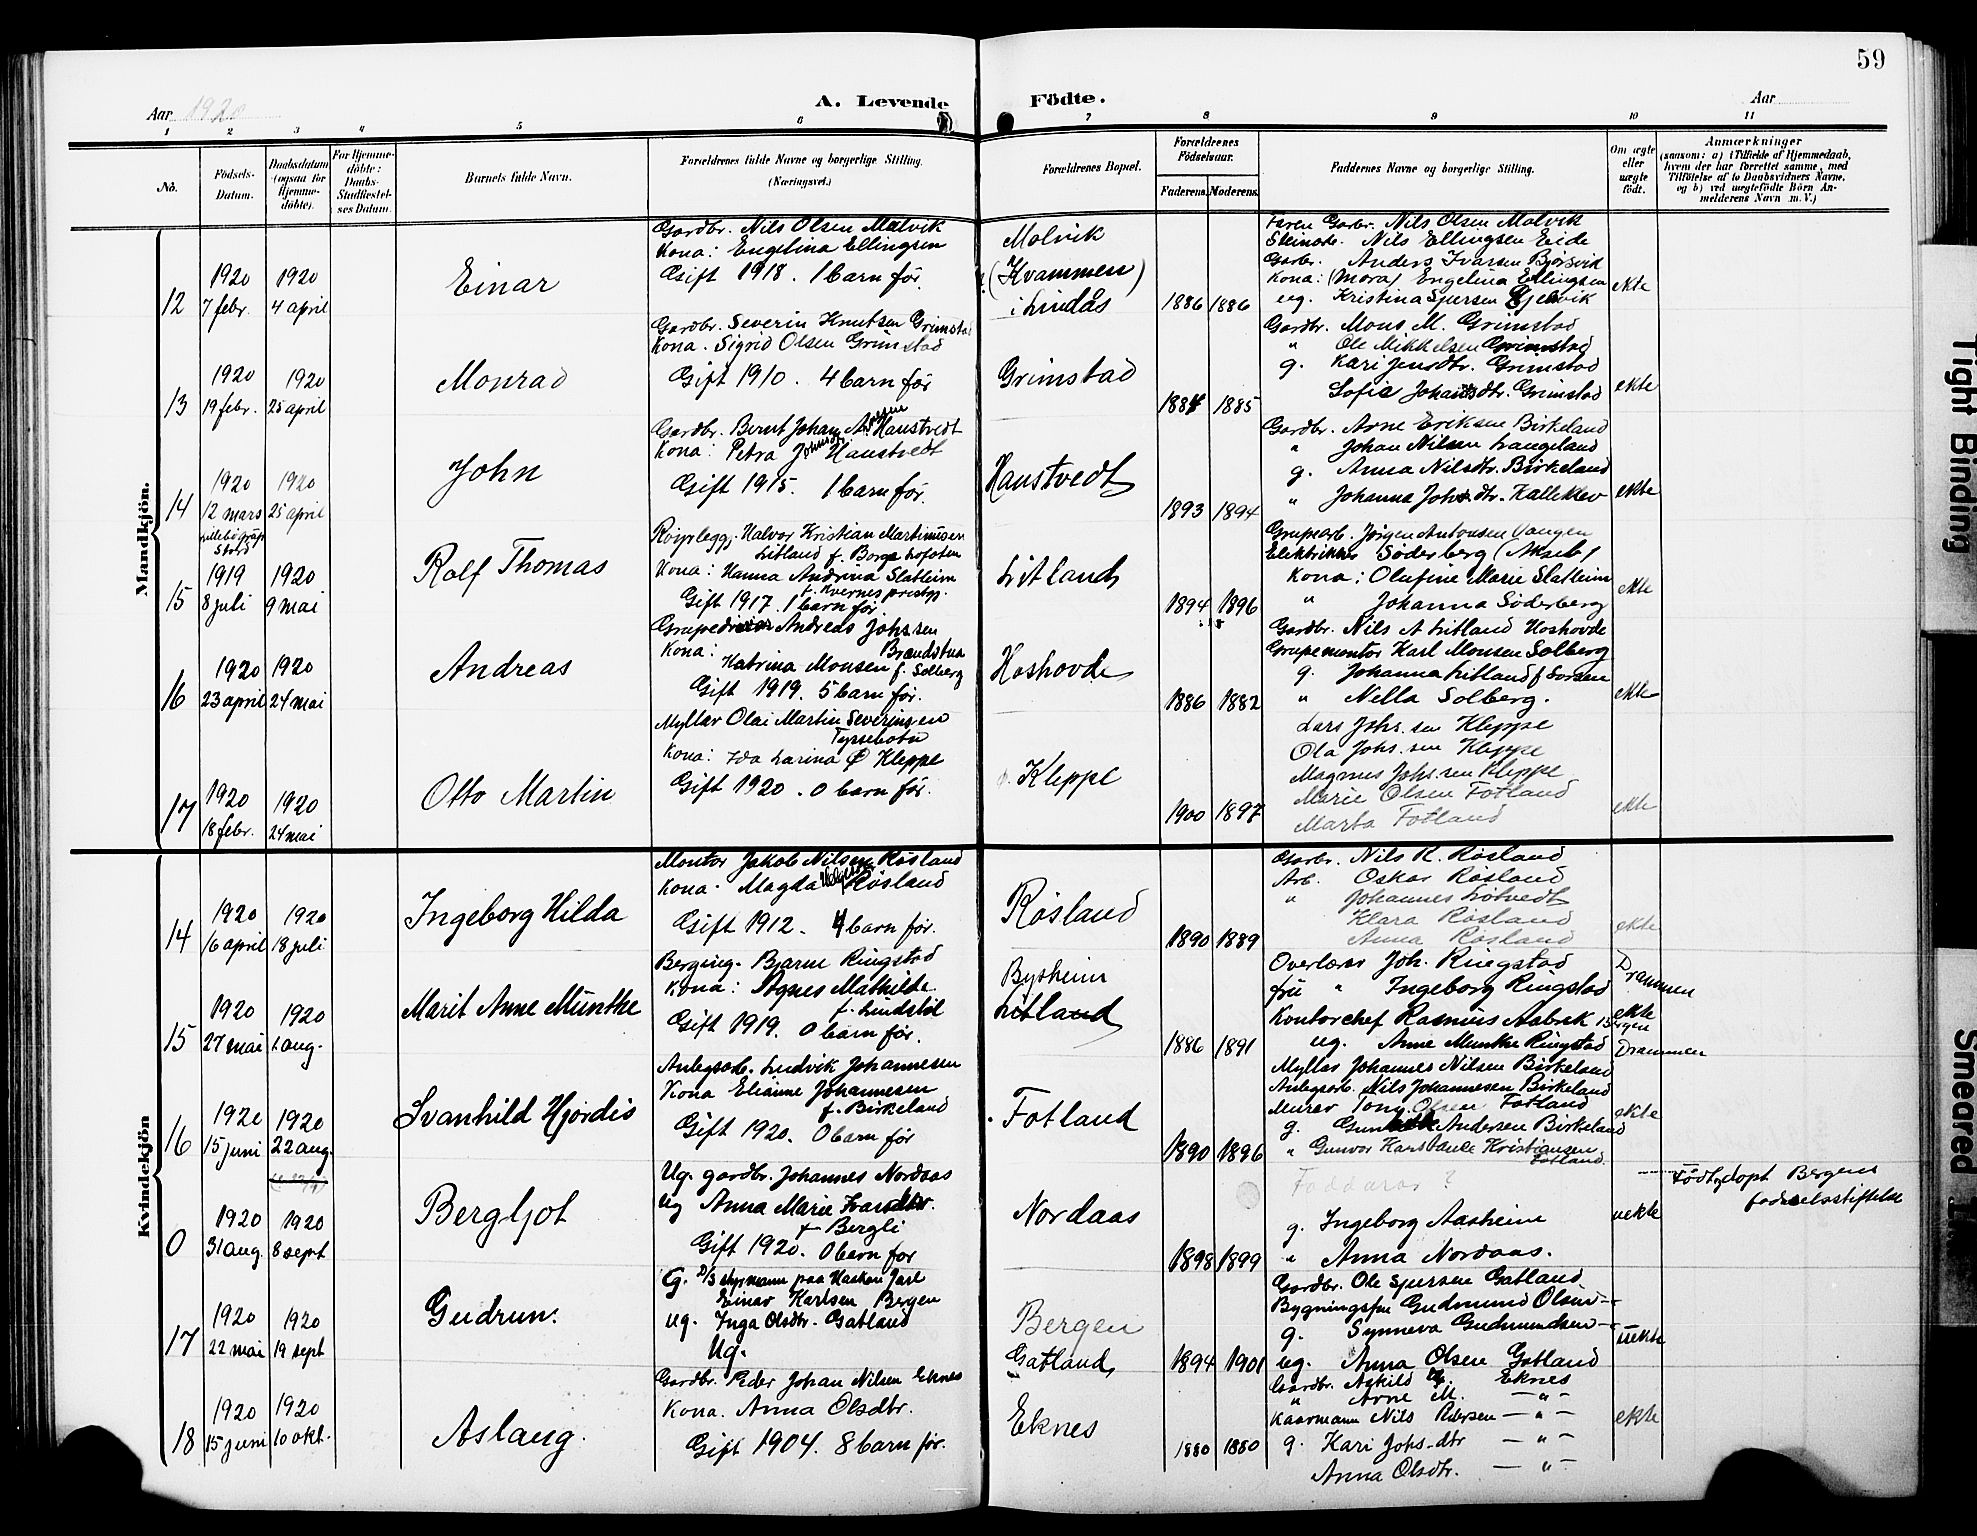 59
Aar 1920
A. Levende Födte.
Aar
1 2 3 4 5 6 7 8 9 10 11
No.
Födsels-Datum.
Daabsdatum (ogsaa for Hjemme-döbte).
For Hjemme-döbte: Daabs-Stadfæstel-ses Datum.
Barnets fulde Navn.
Forældrenes fulde Navne og borgerlige Stilling. (Næringsvei.)
Forældrenes Bopæl.
Forældrenes Födselsaar.
Faderens. Moderens.
Faddernes Navne og borgerlige Stilling.
Om ægte eller uægte födt.
Anmærkninger
(saasom: a) i Tilfælde af Hjemmedaab, hvem der har forrettet samme, med Tilföielse af to Daabsvidners Navne, og b) ved uægtefödte Börn An-melderens Navn m. V.)
Mandkjön.
12
1920 7 febr.
1920 4 april
Einar
Gardbr. Nils Olsen Malvik
Kona: Engelina Ellingsen
Gift 1918. 1 barn før.
Molvik
(Kvammen)
i Lindås
1886 1886
Faren Garbr. Nils Olsen Molvik
Steinarb. Nils Ellingsen Eide
Garbr. Anders Ivarsen Bjørsvik
Kona: (Mora) Engelina Ellingsen
ug. Kristina Sjursen
ekte
13
1920 19 febr.
1920 25 april
Monrad
Gardbr. Severin Knutsen Grimstad
Kona. Sigrid Olsen Grimstad
Gift 1910. 4 barn før
Grimstad
1884 1885
Gardbr. Mons M. Grimstad
" Ole Mikkelsen Grimstad
g. Kari Jensdtr. Grimstad
Sofie Johansdtr. Grimstad
ekte
14
1920 12 mars
1920 25 april
John
Gardbr. Bernt Johan Haustvedt
Kona: Petra Haustvedt
Gift 1915. 1 barn før.
Haustvedt
1893 1894
Gardbr. Arne Eriksen Birkeland
" Johan Nilsen Langeland
g. Anna Nilsdtr. Birkeland
" Johanna Johs.dtr. Kalleklev
ekte
15
1919 8 juli
1920 9 mai
Rolf Thomas
Rørlegg. Halvor Kristian Martinusen
Litland f. Borge Lofoten
Kona: Hanna Andrina Slatleim
f. Kvernes prestg.
Gift 1917. 1 barn før
Litland
1894 1896
Grupearb. Jørgen Antonsen Vangen
Elektriker Søderberg (Aksel)
Kona: Olufine Marie Slatleim
" Johanna Søderberg
ekte
16
1920 23 april
1920 24 mai
Andreas
Andreas Johssen
Brandstua
Kona: Katrina Monsen f. Solberg
Gift 1919. 5 barn før.
Hoshovde
1886 1882
Gardbr. Nils A Litland Hoshovde
Grupemontor Karl Monsen Solberg
g. Johanna Litland
" Nella Solberg.
ekte
17
1920 18 febr.
1920 24 mai
Otto Martin
Myllar Olai Martin Severinsen
Tyssebotn
Kona: Ida Larina Kleppe
Gift 1920. 0 barn før.
Kleppe
1900 1897
Lars Johs.sen Kleppe
Ola Johs.sen Kleppe
Magnus Johs.sen Kleppe
Marie Olsen Fotland
Marta Fotland
ekte
Kvindekjön
14
1920 16 april
1920 18 juli
Ingeborg Hilda
Montør Jakob Nilsen Røsland
Kona. Magda Røsland
Gift 1912. 4 barn før.
Røsland
1890 1889
Garbr. Nils R. Røsland
Arb. Oskar Røsland
" Johannes Løtvedt
Klara Røsland
Anna Røsland
ekte
15
1920 27 mai
1920 1 aug.
Marit Anne Munthe
Berging. Bjarne Ringstad
Kona: Agnes Mathilde
f. Lindstøl
Gift 1919. 0 barn før.
Bysheim
Litland
1886 1891
Overlærer Joh. Ringstad Drammen
fru " Ingeborg Ringstad
Kontorchef Rasmus Aabrek Bergen
ug. Anne Munthe Ringstad Drammen
ekte
16
1920 15 juni
1920 22 aug.
Svanhild Hjørdis
Anlegsarb. Ludvik Johannesen
Kona Elianne Johannesen
f. Birkeland
Gift 1920. 0 barn før
Fotland
1890 1896
Myllar Johannes Nilsen Birkeland
Anlegsarb. Nils Johannesen Birkeland
Murer Tony Olsen Fotland
g. Andersen Birkeland
" Gunvor Kristiansen Fotland
ekte
0
1920 31 aug.
1920 8 sept
Bergljot
Ug. gardbr. Johannes Nordaas
Ug Anna Marie Ivarsdtr.
f Bergli
Gift 1920. 0 barn før
Nordaas
1898 1899
Faddarar?
g. Ingeborg Aasheim
" Anna Nordaas.
uekte
Född og döpt Bergens
fødselsstiftelse
17
1920 22 mai
1920 19 sept
Gudrun.
G. D/S styrmann paa Haakon Jarl
Einar Karlsen Bergen
Ug. Inga Olsdtr. Gatland
Ug.
Bergen
Gatland
1894 1901
Gardbr. Ole Sjursen Gatland
Gudmund Olsen —"—
g. Synneva Gudmundsen —"—
ug. Anna Olsen Gatland
uekte
18
1920 15 juni
1920 10 okt.
Aslaug.
Gardbr. Peder Johan Nilsen Eknes
Kona. Anna Olsdtr.
Gift 1904. 8 barn før.
Eknes
1880 1880
Gardbr. Askild Eknes
" Arne M. —"—
Kaarmann Nils Pedersen —"—
g. Kari Johs.dtr —"—
Anna Olsdtr. —"—
ekte
Tight Binding
Smeared Ink